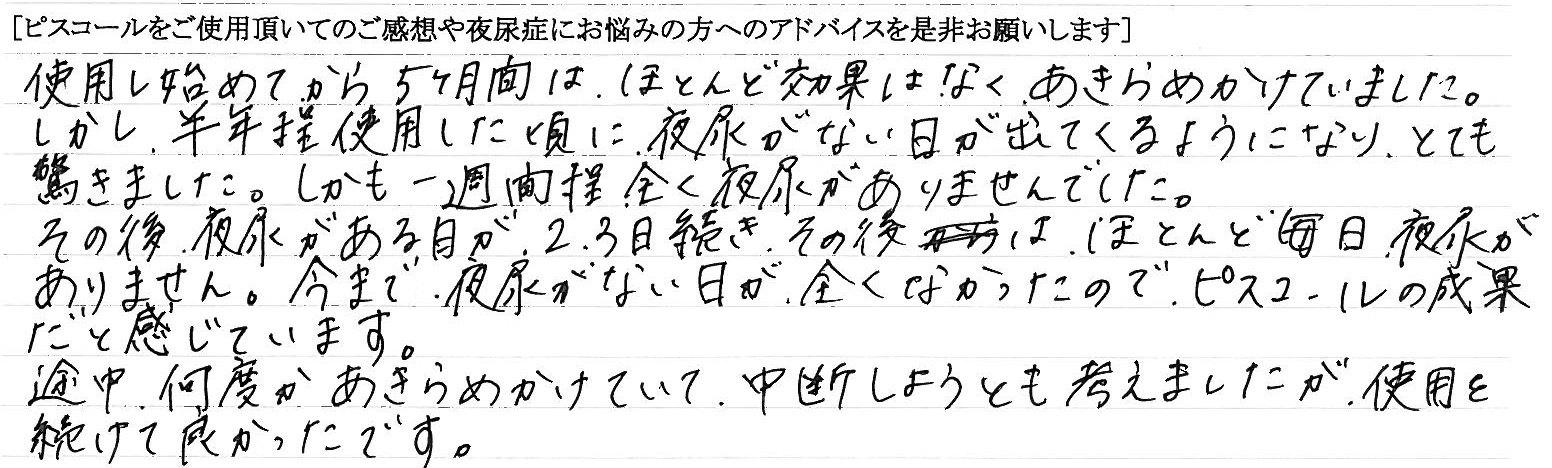 [ピスコールをご使用頂いてのご感想や夜尿症にお悩みの方へのアドバイスを是非お願いします]
使用し始めてから5ヶ月間は、ほとんど効果はなく、あきらめかけていました。
しかし、半年程使用した頃に、夜尿がない日が出てくるようになり、とても
驚きました。しかも一週間程、全く夜尿がありませんでした。
その後、夜尿がある日が、2、3日続き、その後は、ほとんど毎日、夜尿が
ありません。今まで、夜尿がない日が、全くなかったので、ピスコールの成果
だと感じています。
途中、何度かあきらめかけていて、中断しようとも考えましたが、使用を
続けて良かったです。